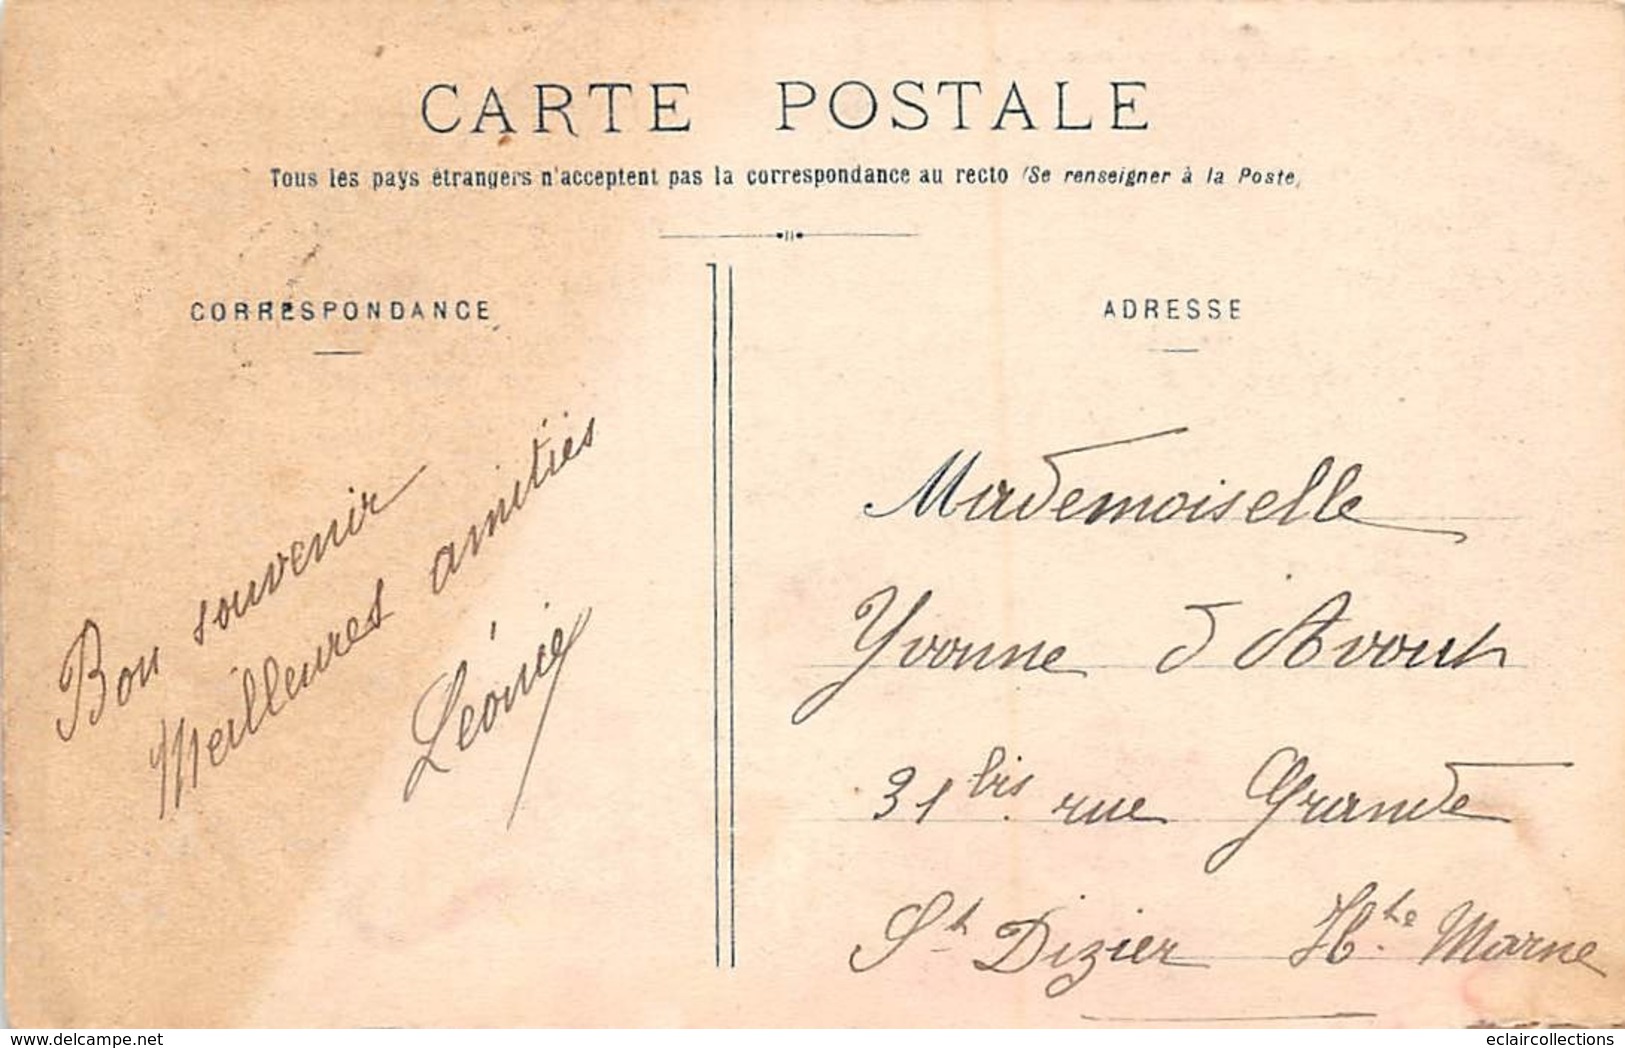 CARTE POSTALE
Tous les pays étrangers n'acceptent pas la correspondance au recto (Se renseigner à la Poste)
CORRESPONDANCE
Bon souvenir
Meilleures amitiés
Léonie
ADRESSE
Mademoiselle
Yvonne d'Avout
31 bis. rue Grande
St Dizier Hte Marne
www.delcampe.net
eclaircollections